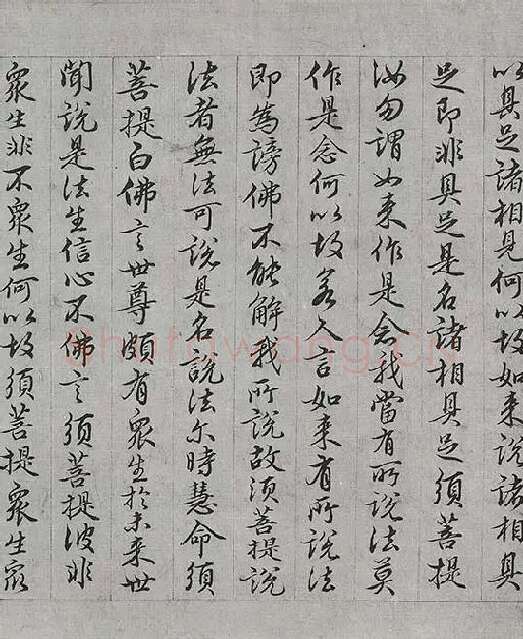 以具足諸相見何以故如来說諸相具
足即非具足是名諸相具足須菩提
汝勿謂如来作是念我當有所說法莫
作是念何以故若人言如来有所說法
即為謗佛不能解我所說故須菩提說
法者無法可說是名說法尔時慧命須
菩提白佛言世尊頗有眾生於未来世
聞說是法生信心不佛言須菩提彼非
眾生非不眾生何以故須菩提眾生眾
shufawang.cn